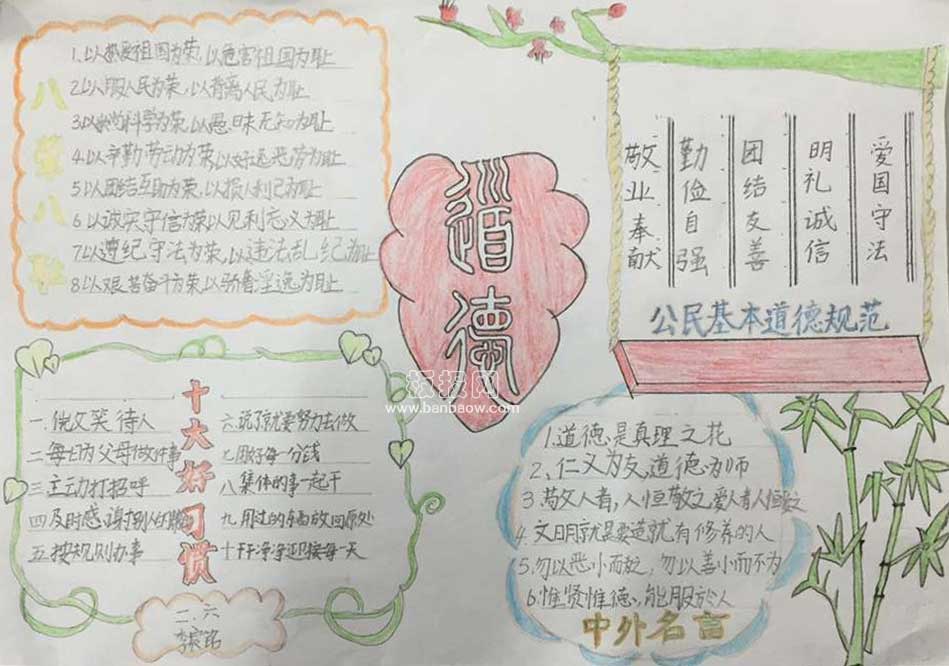 八荣八耻
1.以热爱祖国为荣,以危害祖国为耻
2.以服人民为荣,以背离人民为耻
3.以崇尚科学为荣,以愚昧无知为耻
4.以辛勤劳动为荣以好逸恶劳为耻
5.以团结互助为荣,以损人利己为耻
6.以诚实守信为荣以见利忘义为耻
7.以遵纪守法为荣,以违法乱纪为耻
8.以艰苦奋斗为荣以骄奢淫逸为耻
道德
爱国守法
明礼诚信
团结友善
勤俭自强
敬业奉献
公民基本道德规范
板报网
www.banbaow.com
十大好习惯
一.微笑待人
二.每天为父母做件事
三.主动打招呼
四.及时感谢别人的
五.按规则办事
六.说了就要努力去做
七.用好每一分钱
八.集体的事一起干
九.用过的东西放回原处
十.干干净净迎接每一天
二.六
李
1.道德是真理之花
2、仁义为友,道德为师
3.敬人者,人恒敬之爱人者人恒爱之
4.文明就是要造就有修养的人
5.勿以恶小而为之,勿以善小而不为
6.惟贤惟德,能服於人
中外名言